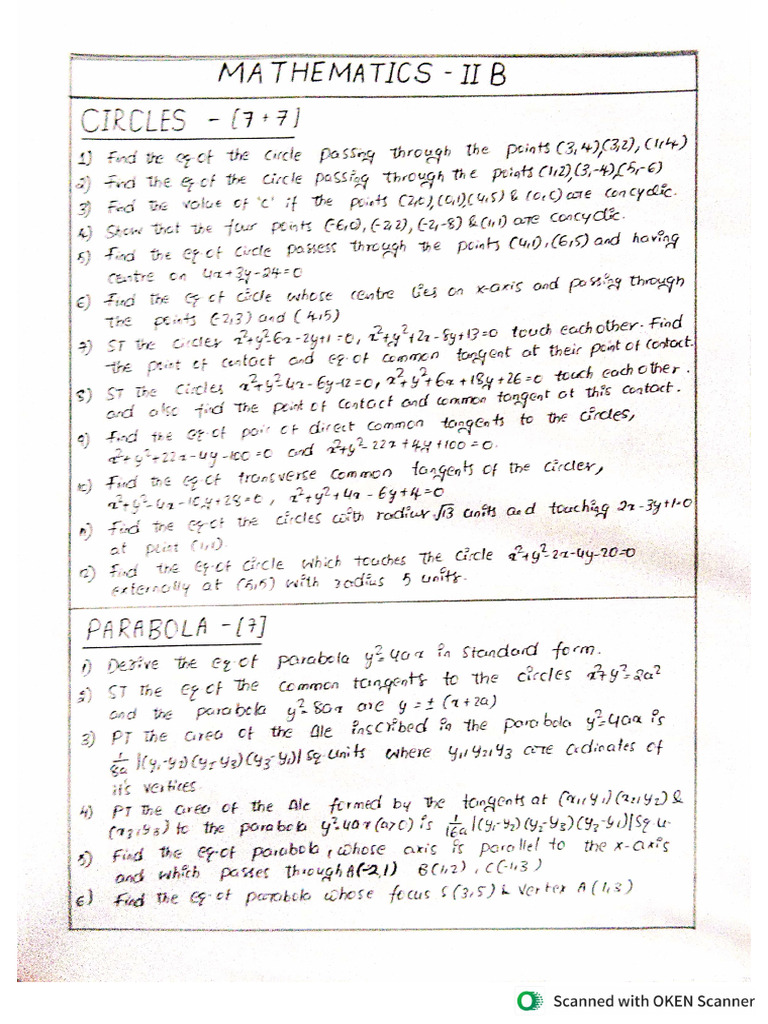 MATHEMATICS - II B
CIRCLES - [7+7]
1) Find the eq of the circle passing through the points (3,4),(3,2),(1,4)
2) Find the eq of the circle passing through the points (1,2),(3,-4),(5,-6)
3) Find the value of 'c' if the points (2,0),(0,1)(4,5) & (0,c) are concyclic.
4) Show that the four points (-6,0),(-2,2),(-2,-8) & (1,1) are concyclic.
5) Find the eq of circle passess through the points (4,1),(6,5) and having
centre on 4x+3y-24=0
6) Find the eq of circle whose centre lies on x-axis and passing through
the points (-2,3) and (4,5)
7) ST the circles x²+y²-6x-2y+1=0, x²+y²+2x-8y+13=0 touch each other. Find
the point of contact and eq of common tangent at their point of contact.
8) ST the circles x²+y²-4x-6y-12=0, x²+y²+6x+18y+26=0 touch each other.
and also find the point of contact and common tangent at this contact.
9) Find the eq of pair of direct common tangents to the circles,
x²+y²+22x-4y-100=0 and x²+y²-22x+4y+100=0.
10) Find the eq of transverse common tangents of the circles,
x²+y²-4x-10y+28=0, x²+y²+4x-6y+4=0
11) Find the eq of the circles with radius √13 units and touching 2x-3y+1=0
at point (1,1).
12) Find the eq of circle which touches the circle x²+y²-2x-4y-20=0
externally at (5,5) with radius 5 units.
PARABOLA - [7]
1) Derive the eq of parabola y²=4ax in standard form.
2) ST the eq of the common tangents to the circles x²+y²=2a²
and the parabola y²=8ax are y=±(x+2a)
3) PT the area of the Δle inscribed in the parabola y²=4ax is
1/8a |(y₁-y₂)(y₂-y₃)(y₃-y₁)| sq.units where y₁,y₂,y₃ are ordinates of
it's vertices.
4) PT the area of the Δle formed by the tangents at (x₁,y₁)(x₂,y₂) &
(x₃,y₃) to the parabola y²=4ax (a>0) is 1/16a |(y₁-y₂)(y₂-y₃)(y₃-y₁)| sq.u.
5) Find the eq of parabola, whose axis is parallel to the x-axis
and which passes through A(-2,1) B(1,2), C(-1,3)
6) Find the eq of parabola whose focus S(3,5) & vertex A(1,3)
Scanned with OKEN Scanner